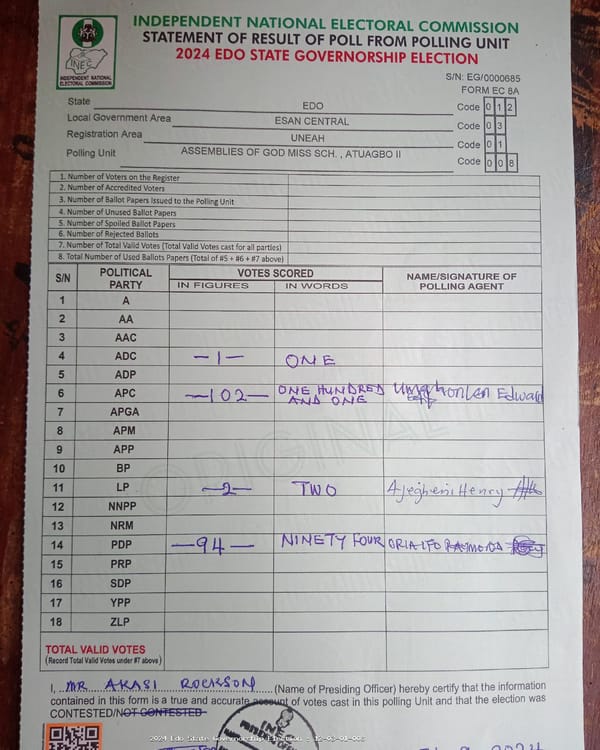 INDEPENDENT NATIONAL ELECTORAL COMMISSION
STATEMENT OF RESULT OF POLL FROM POLLING UNIT
2024 EDO STATE GOVERNORSHIP ELECTION
INEC
INDEPENDENT NATIONAL
ELECTORAL COMMISSION
S/N: EG/0000685
FORM EC 8A
State EDO Code 0 1 2
Local Government Area ESAN CENTRAL Code 0 3
Registration Area UNEAH Code 0 1
Polling Unit ASSEMBLIES OF GOD MISS SCH. , ATUAGBO II Code 0 0 8
1. Number of Voters on the Register
2. Number of Accredited Voters
3. Number of Ballot Papers Issued to the Polling Unit
4. Number of Unused Ballot Papers
5. Number of Spoiled Ballot Papers
6. Number of Rejected Ballots
7. Number of Total Valid Votes (Total Valid Votes cast for all parties)
8. Total Number of Used Ballots Papers (Total of #5 + #6 + #7 above)
S/N POLITICAL PARTY VOTES SCORED NAME/SIGNATURE OF POLLING AGENT
IN FIGURES IN WORDS
1 A
2 AA
3 AAC
4 ADC –1– ONE
5 ADP
6 APC –102– ONE HUNDRED AND ONE Edward
7 APGA
8 APM
9 APP
10 BP
11 LP –2– TWO Ajeghemi Henry
12 NNPP
13 NRM
14 PDP –94– NINETY FOUR
15 PRP
16 SDP
17 YPP
18 ZLP
ORIGINAL
TOTAL VALID VOTES
(Record Total Valid Votes under #7 above)
I, MR AKASI ROCKSON (Name of Presiding Officer) hereby certify that the information
contained in this form is a true and accurate account of votes cast in this polling Unit and that the election was
CONTESTED/NOT CONTESTED
2024 Edo State Governorship Election - 12-03-01-008